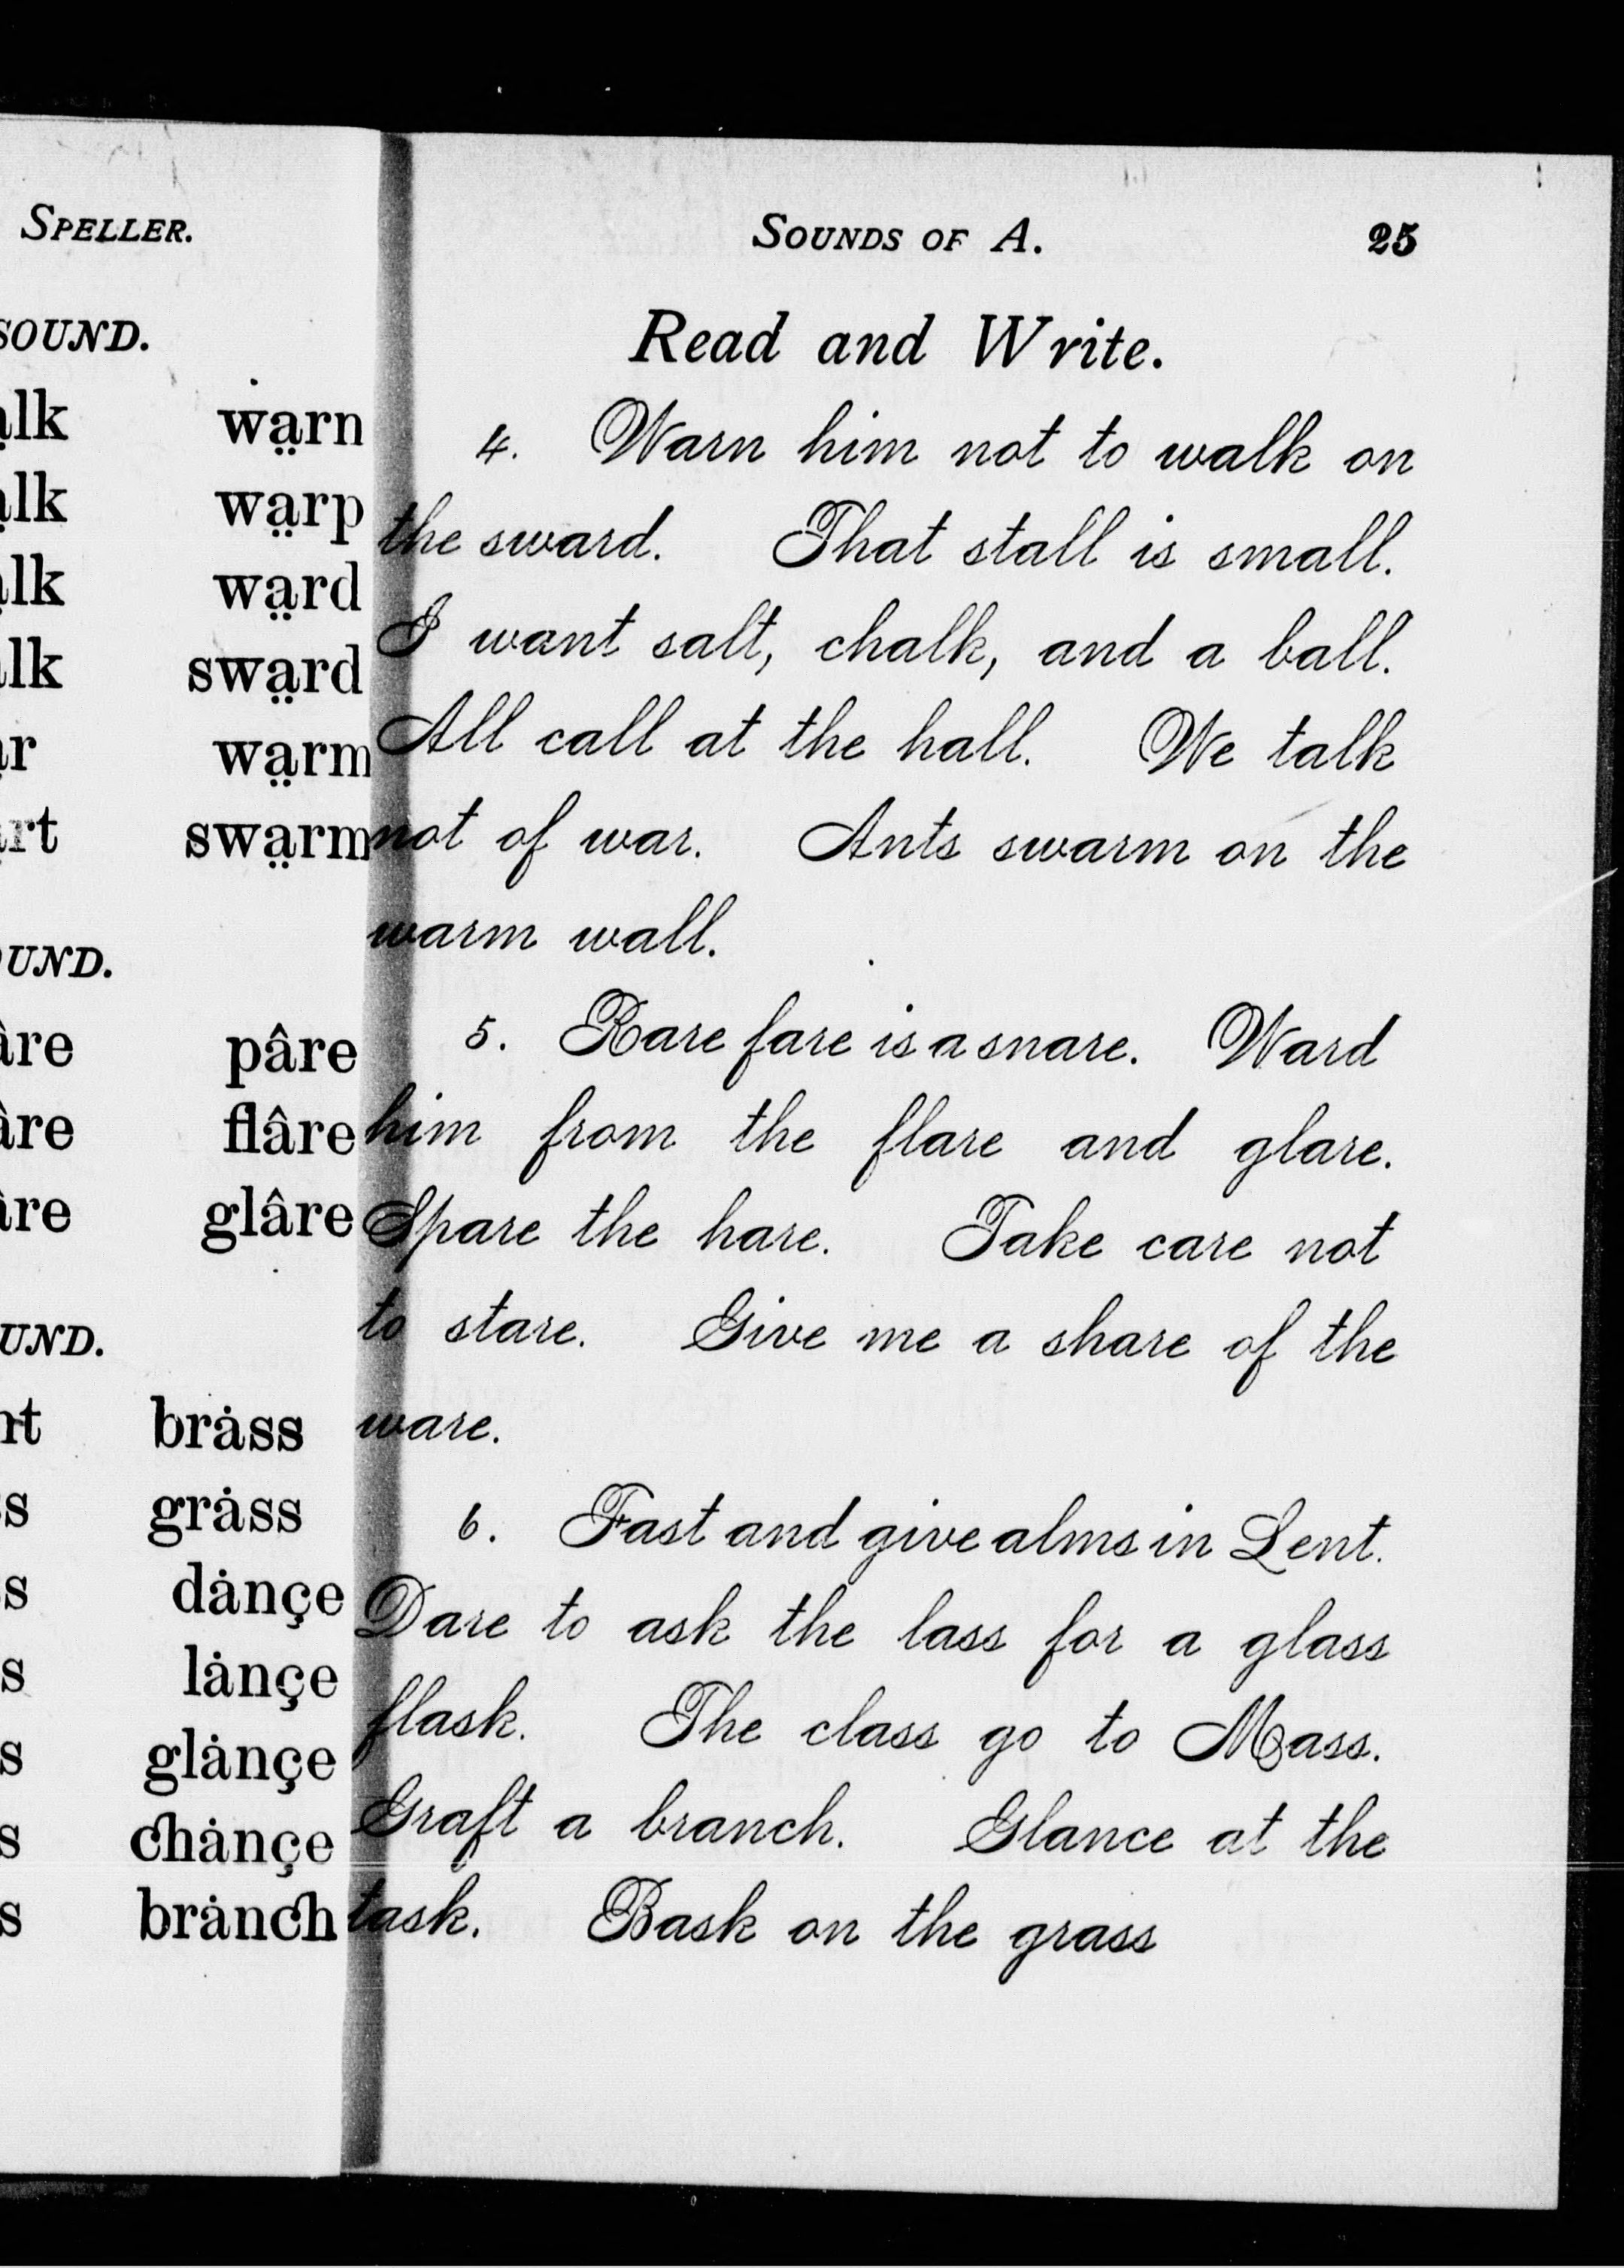 SPELLER.
SOUND.
wa̤rn
wa̤rp
wa̤rd
swa̤rd
wa̤rm
swa̤rm
pâre
flâre
glâre
brȧss
grȧss
dȧnçe
lȧnçe
glȧnçe
chȧnçe
brȧnch
SOUNDS OF A. 25
Read and Write.
4. Warn him not to walk on
the sward. That stall is small.
I want salt, chalk, and a ball.
All call at the hall. We talk
not of war. Ants swarm on the
warm wall.
5. Rare fare is a snare. Ward
him from the flare and glare.
Spare the hare. Take care not
to stare. Give me a share of the
ware.
6. Fast and give alms in Lent.
Dare to ask the lass for a glass
flask. The class go to Mass.
Graft a branch. Glance at the
task. Bask on the grass